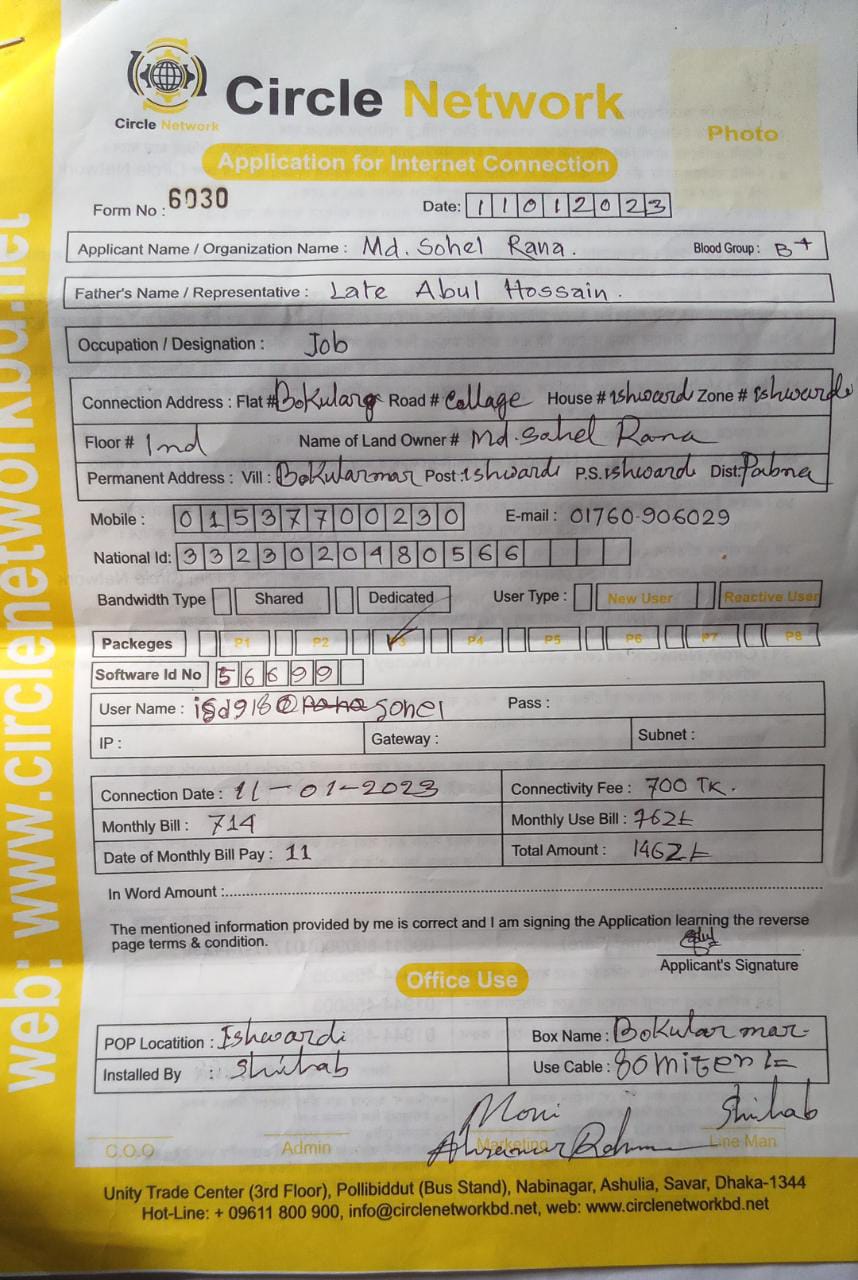 Circle Network
Circle Network
Photo
Application for Internet Connection
Form No : 6030 Date: 11012023
Applicant Name / Organization Name : Md. Sohel Rana. Blood Group : B+
Father's Name / Representative : Late Abul Hossain.
Occupation / Designation : Job
Connection Address : Flat # Road # Collage House # ishward Zone # ishwardi
Floor # Ind Name of Land Owner # Md. Sahel Rana
Permanent Address : Vill : Bokularmar Post : ishwardi P.S. ishwardi Dist: Pabna
Mobile : 01537700230 E-mail : 01760-906029
National Id: 3323020480566
Bandwidth Type Shared Dedicated User Type : New User Reactive User
Packeges P1 P2 P4 P5 P6 P7 P8
Software Id No 56699
User Name : isd918@ sohel Pass :
IP : Gateway : Subnet :
Connection Date : 11-01-2023 Connectivity Fee : 700 TK.
Monthly Bill : 714 Monthly Use Bill : 762
Date of Monthly Bill Pay : 11 Total Amount : 1462
In Word Amount :
The mentioned information provided by me is correct and I am signing the Application learning the reverse
page terms & condition.
Applicant's Signature
Office Use
POP Locatition : Ishwardi Box Name : Bokular mar
Installed By : Shihab Use Cable : 80 miter
Moni Shihab
C.O.O Admin Marketing Line Man
Unity Trade Center (3rd Floor), Pollibiddut (Bus Stand), Nabinagar, Ashulia, Savar, Dhaka-1344
Hot-Line: + 09611 800 900, info@circlenetworkbd.net, web: www.circlenetworkbd.net
web: www.circlenetworkbd.net